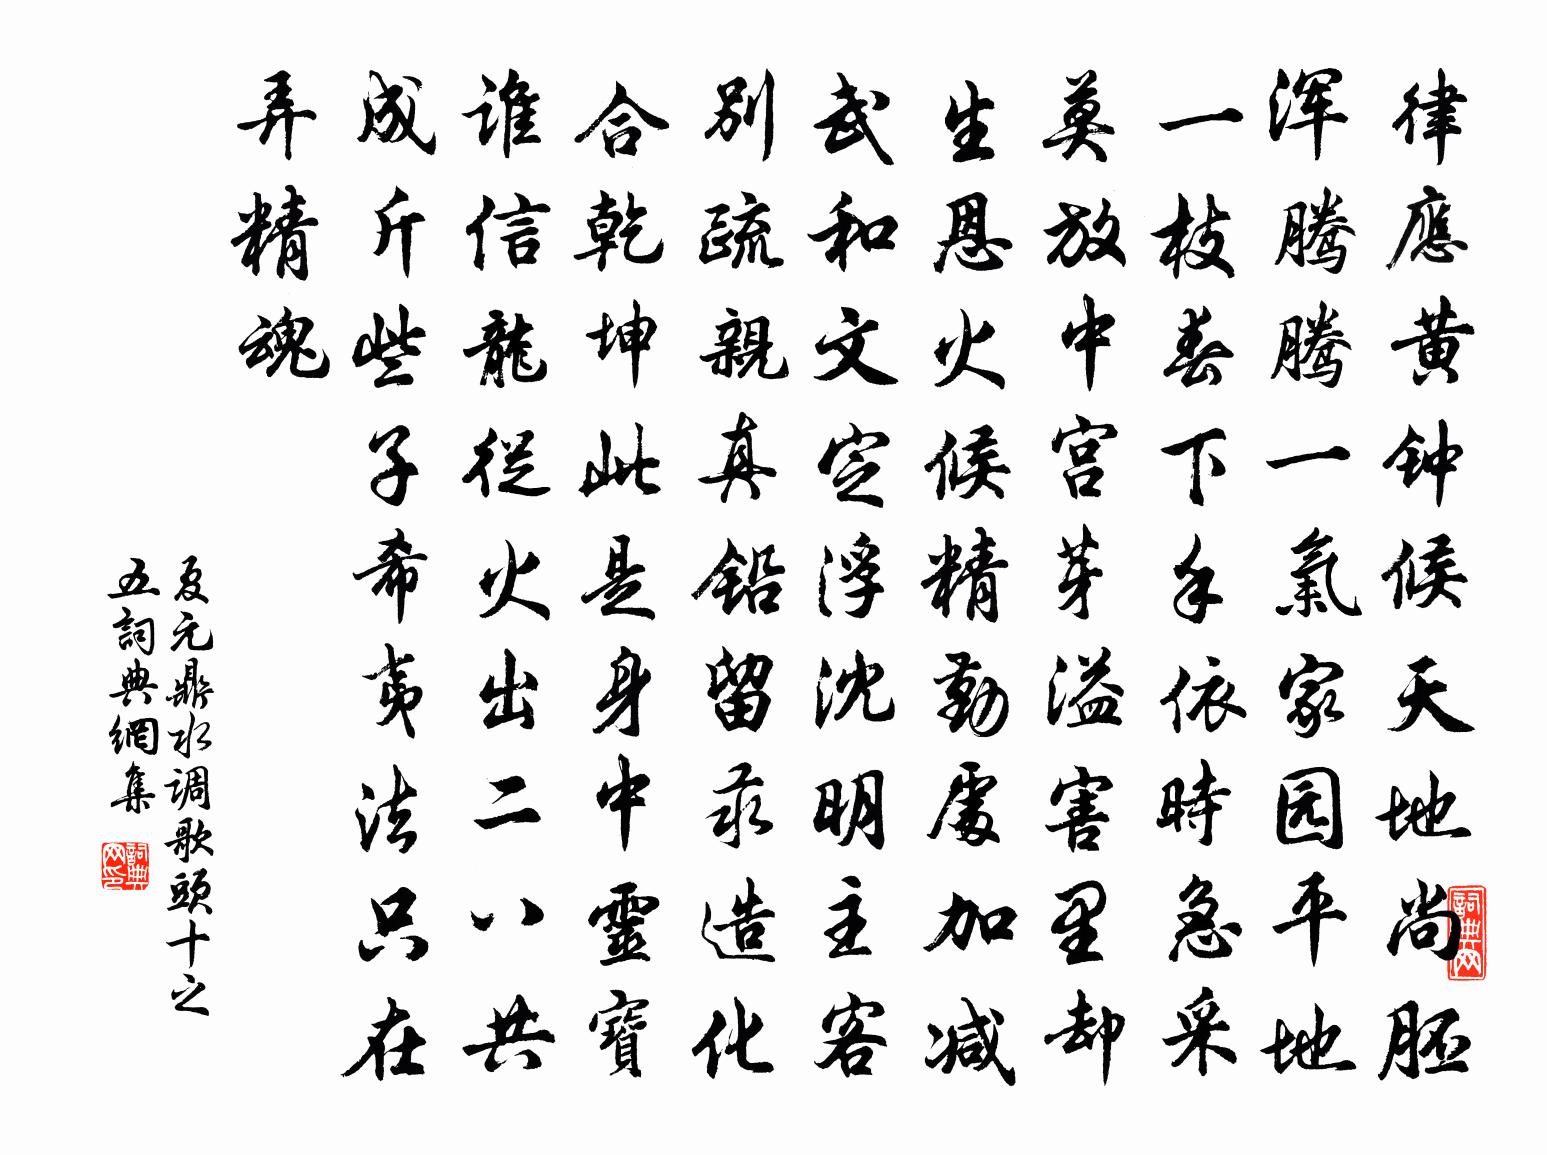 律應黄钟候天地尚胚
浑腾腾一氣家园平地
一枝春下手依時急采
莫放中宫芽溢害里却
生恩火候精勤處加减
武和文定浮沈明主客
别疏親真铅留汞造化
合乾坤此是身中靈寶
谁信龍從火出二八共
成斤些子希夷法只在
弄精魂
夏元鼎水调歌頭十之
五詞典網集
詞典网印
詞典网